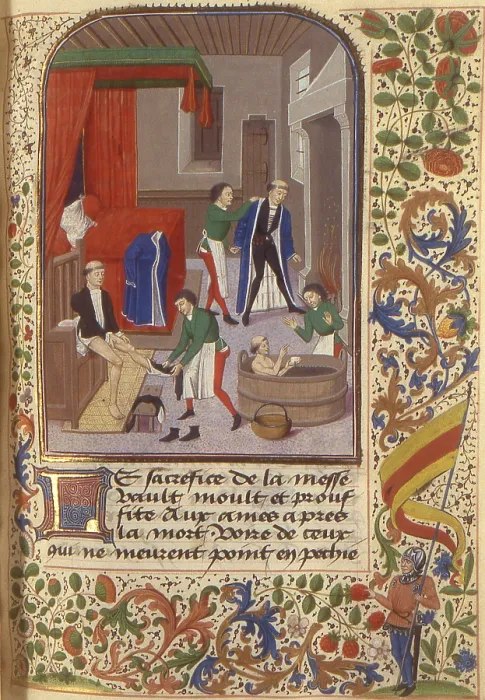 Le sacrefice de la messe
vault moult et prouf
fite aux ames apres
la mort voire de ceux
qui ne meurent point en pechie